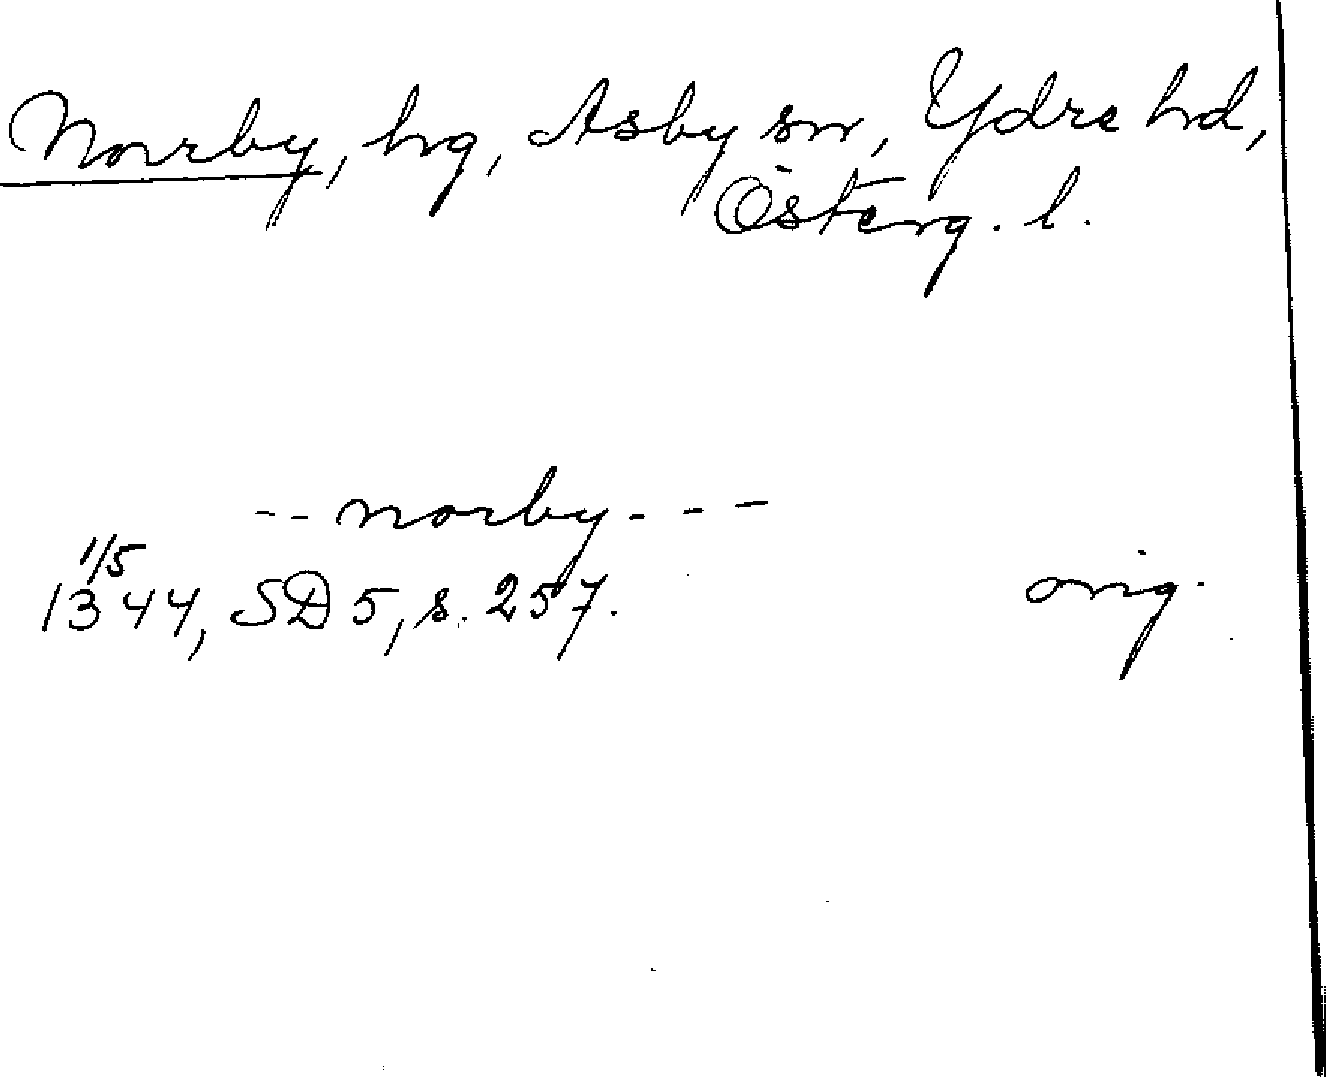 Norrby, hg, Asby sn, Ydre hd,
Österg. l.
-- norby - - -
1/5
1344, SD 5, s. 257. orig.